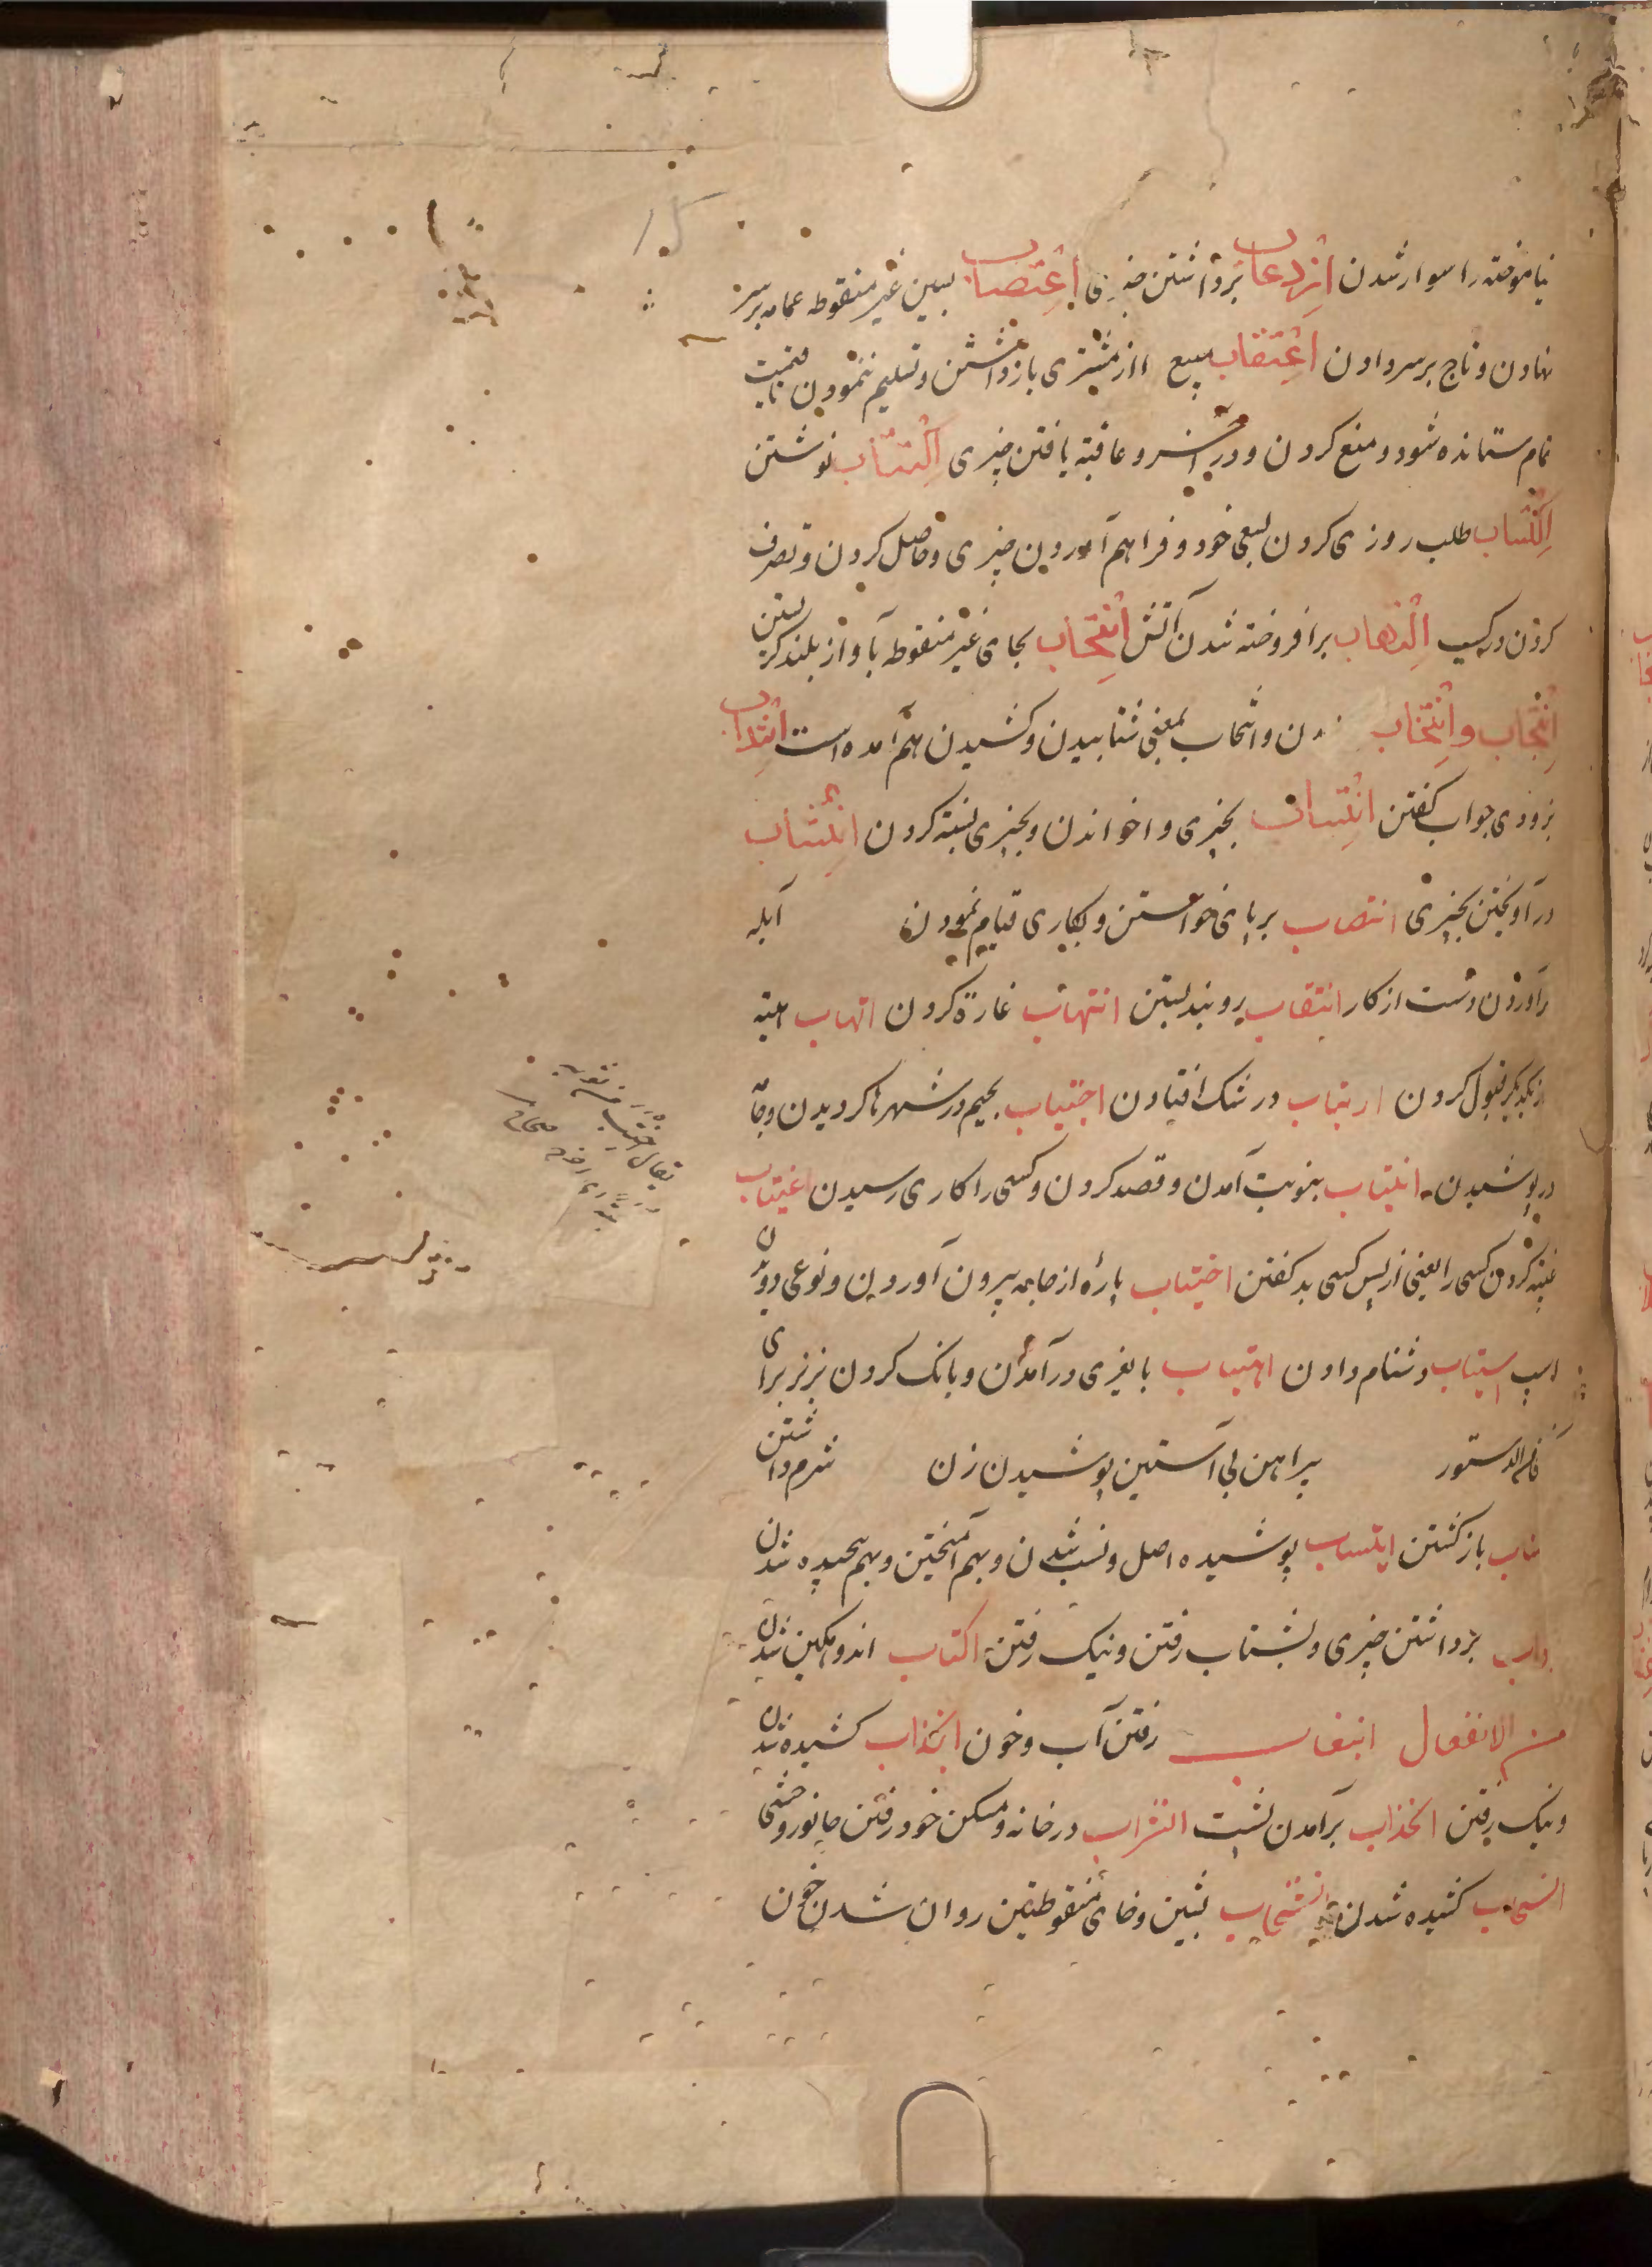 نیاموخته را سوار شدن اِزْدِعاب برداشتن چیزی اِعْتِصاب بسین غیر منقوطه عمامه بر سر
نهادن و تاج بر سر دادن اِعْتِقاب مبیع از مشتری باز داشتن و تسلیم ننمودن تا قیمت
تمام ستانده شود و منع کردن و در آخر و عاقبة یافتن چیزی اِکْتِتاب نوشتن
اِکْتِساب طلب روزی کردن بسعی خود و فراهم آوردن چیزی و حاصل کردن و تصرف
کردن در کسب اِلْتِهاب برافروخته شدن آتش اِنْتِحاب بحای غیر منقوطه بآواز بلند گریستن
اِنْتِجاب و اِنْتِخاب دن و انتخاب بمعنی شتابیدن و کشیدن هم آمده است اِنْتِداب
بزودی جواب گفتن اِنْتِساب بچیزی واخواندن و بچیزی نسبة کردن اِنْتِشاب
در آویختن بچیزی انتصاب بر پای خواستن و بکاری قیام نمودن آبله
برآوردن دست از کار انتقاب روبند بستن انتهاب غارة کردن اتهاب هبه
از یکدیگر قبول کردن ارتیاب در شک افتادن اجتیاب بجیم در شهرها گردیدن و جامه
در پوشیدن انتیاب بنوبت آمدن و قصد کردن و کسی را کاری رسیدن اغتیاب
غیبة کردن کسی را یعنی از پس کسی بد گفتن اختیاب پارهٔ از جامه بیرون آوردن و نوعی دویدن
اسپ استیاب دشنام دادن اهتیاب بالغری در آمدن و بانک کردن بز نر برای
پیراهن بی آستین پوشیدن زن شرم داشتن
باز گشتن ایتساب پوشیده اصل و نسب شدن و بهم آمیختن و بهم پیچیده شدن
برداشتن چیزی و بشتاب رفتن و نیک رفتن اکتاب اندوهگین شدن
من الانفعال رفتن آب و خون انجذاب کشیده شدن
و نیک رفتن انحداب برآمدن پشت انزراب در خانه و مسکن خود رفتن جانور وحشی
انسحاب کشیده شدن انشخاب بشین و خای منقوطتین روان شدن خون